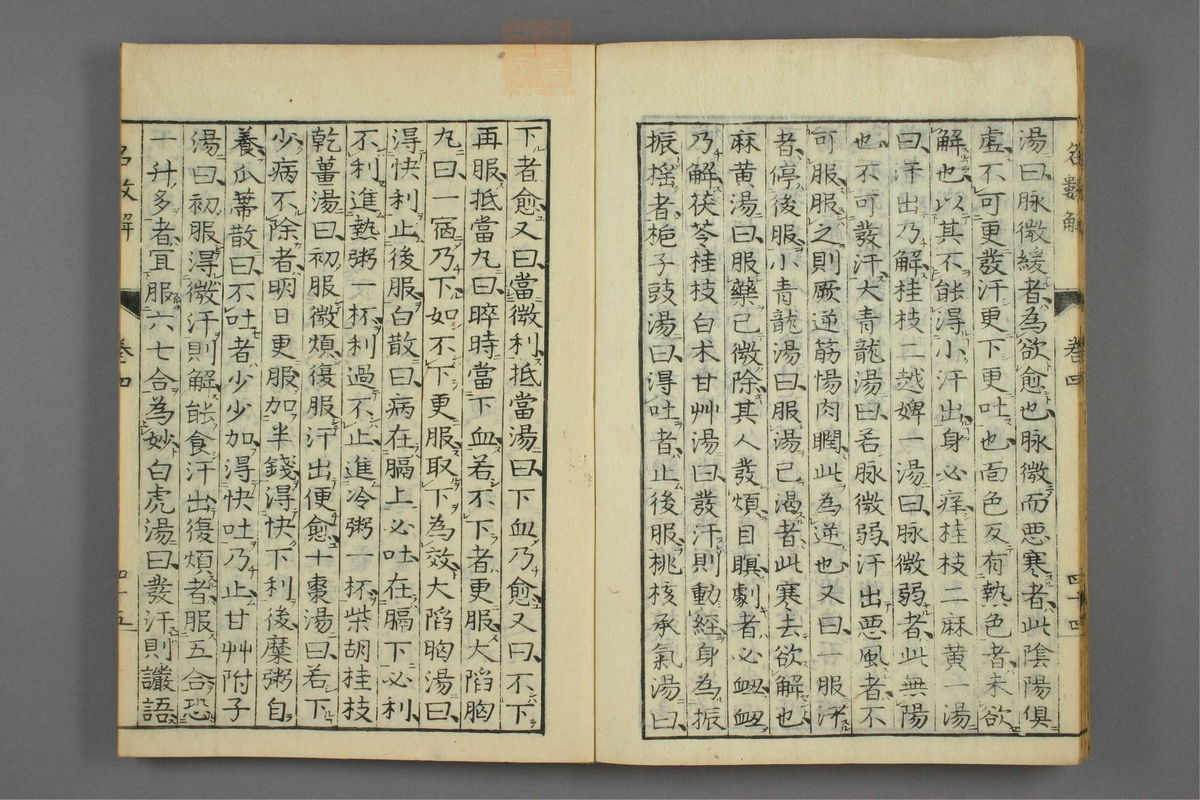 名數解 卷四 四十四
湯曰脉微緩者為欲愈也脉微而惡寒者此陰陽俱
虛不可更發汗更下更吐也面色反有熱色者未欲
解也以其不能得小汗出身必痒桂枝二麻黃一湯
曰汗出乃解桂枝二越婢一湯曰脉微弱者此無陽
也不可發汗大青龍湯曰若脉微弱汗出惡風者不
可服服之則厥逆筋惕肉瞤此為逆也又曰一服汗
者停後服小青龍湯曰服湯已渴者此寒去欲解也
麻黃湯曰服藥已微除其人發煩目瞑劇者必衂衂
乃解茯苓桂枝白朮甘艸湯曰發汗則動經身為振
振搖者梔子豉湯曰得吐者止後服桃核承氣湯曰
下者愈又曰當微利抵當湯曰下血乃愈又曰不下
再服抵當丸曰晬時當下血若不下者更服大陷胸
丸曰一宿乃下如不下更服取下為效大陷胸湯曰
得快利止後服白散曰病在膈上必吐在膈下必利
不利進熱粥一杯利過不止進冷粥一杯柴胡桂枝
乾薑湯曰初服微煩復服汗出便愈十棗湯曰若下
少病不除者明日更服加半錢得快下利後糜粥自
養瓜蔕散曰不吐者少少加得快吐乃止甘艸附子
湯曰初服得微汗則解能食汗出復煩者服五合恐
一升多者宜服六七合為妙白虎湯曰發汗則讝語
名數解 卷四 四十五